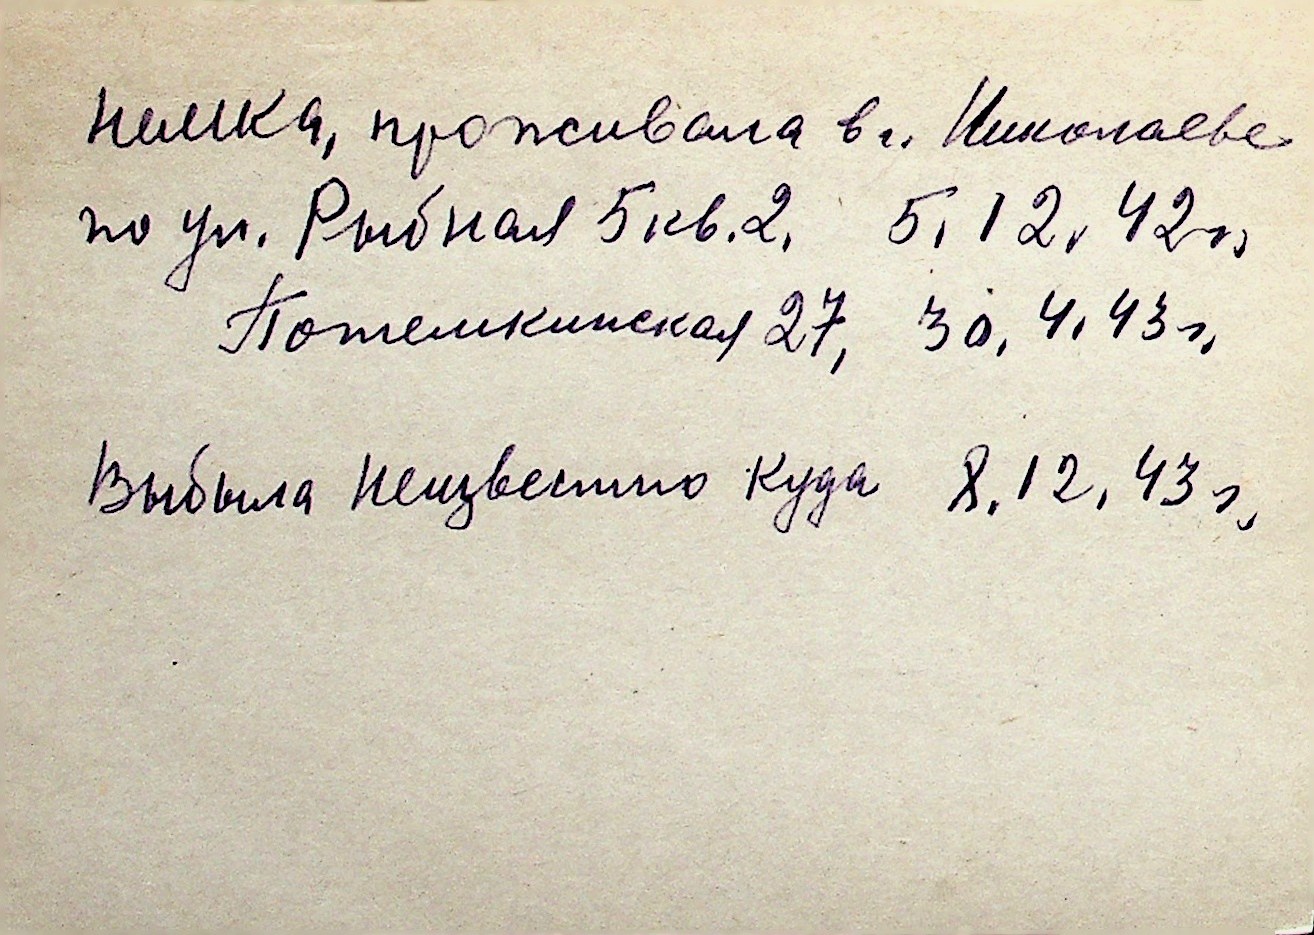 немка, проживала в г. Николаеве
по ул. Рыбная 5 кв. 2. 5.12.42 г.,
Потемкинская 27, 30.4.43 г.
Выбыла неизвестно куда 8.12.43 г.